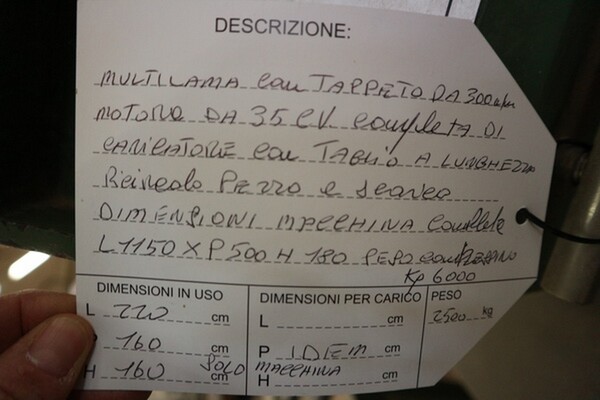 DESCRIZIONE:
MULTILAMA con TAPPETO DA 300 m/m
MOTORE DA 35 CV completa DI
CARICATORE con TAGLIO A LUNGHEZZA
Riciclo PEZZO e scarico
DIMENSIONI MACCHINA complete
L 1150 X P 500 H 180 PESO complessivo
Kp 6000
DIMENSIONI IN USO DIMENSIONI PER CARICO PESO
L 220 cm L cm 2500 kg
160 cm P IDEM cm
H 160 cm SOLO MACCHINA H cm